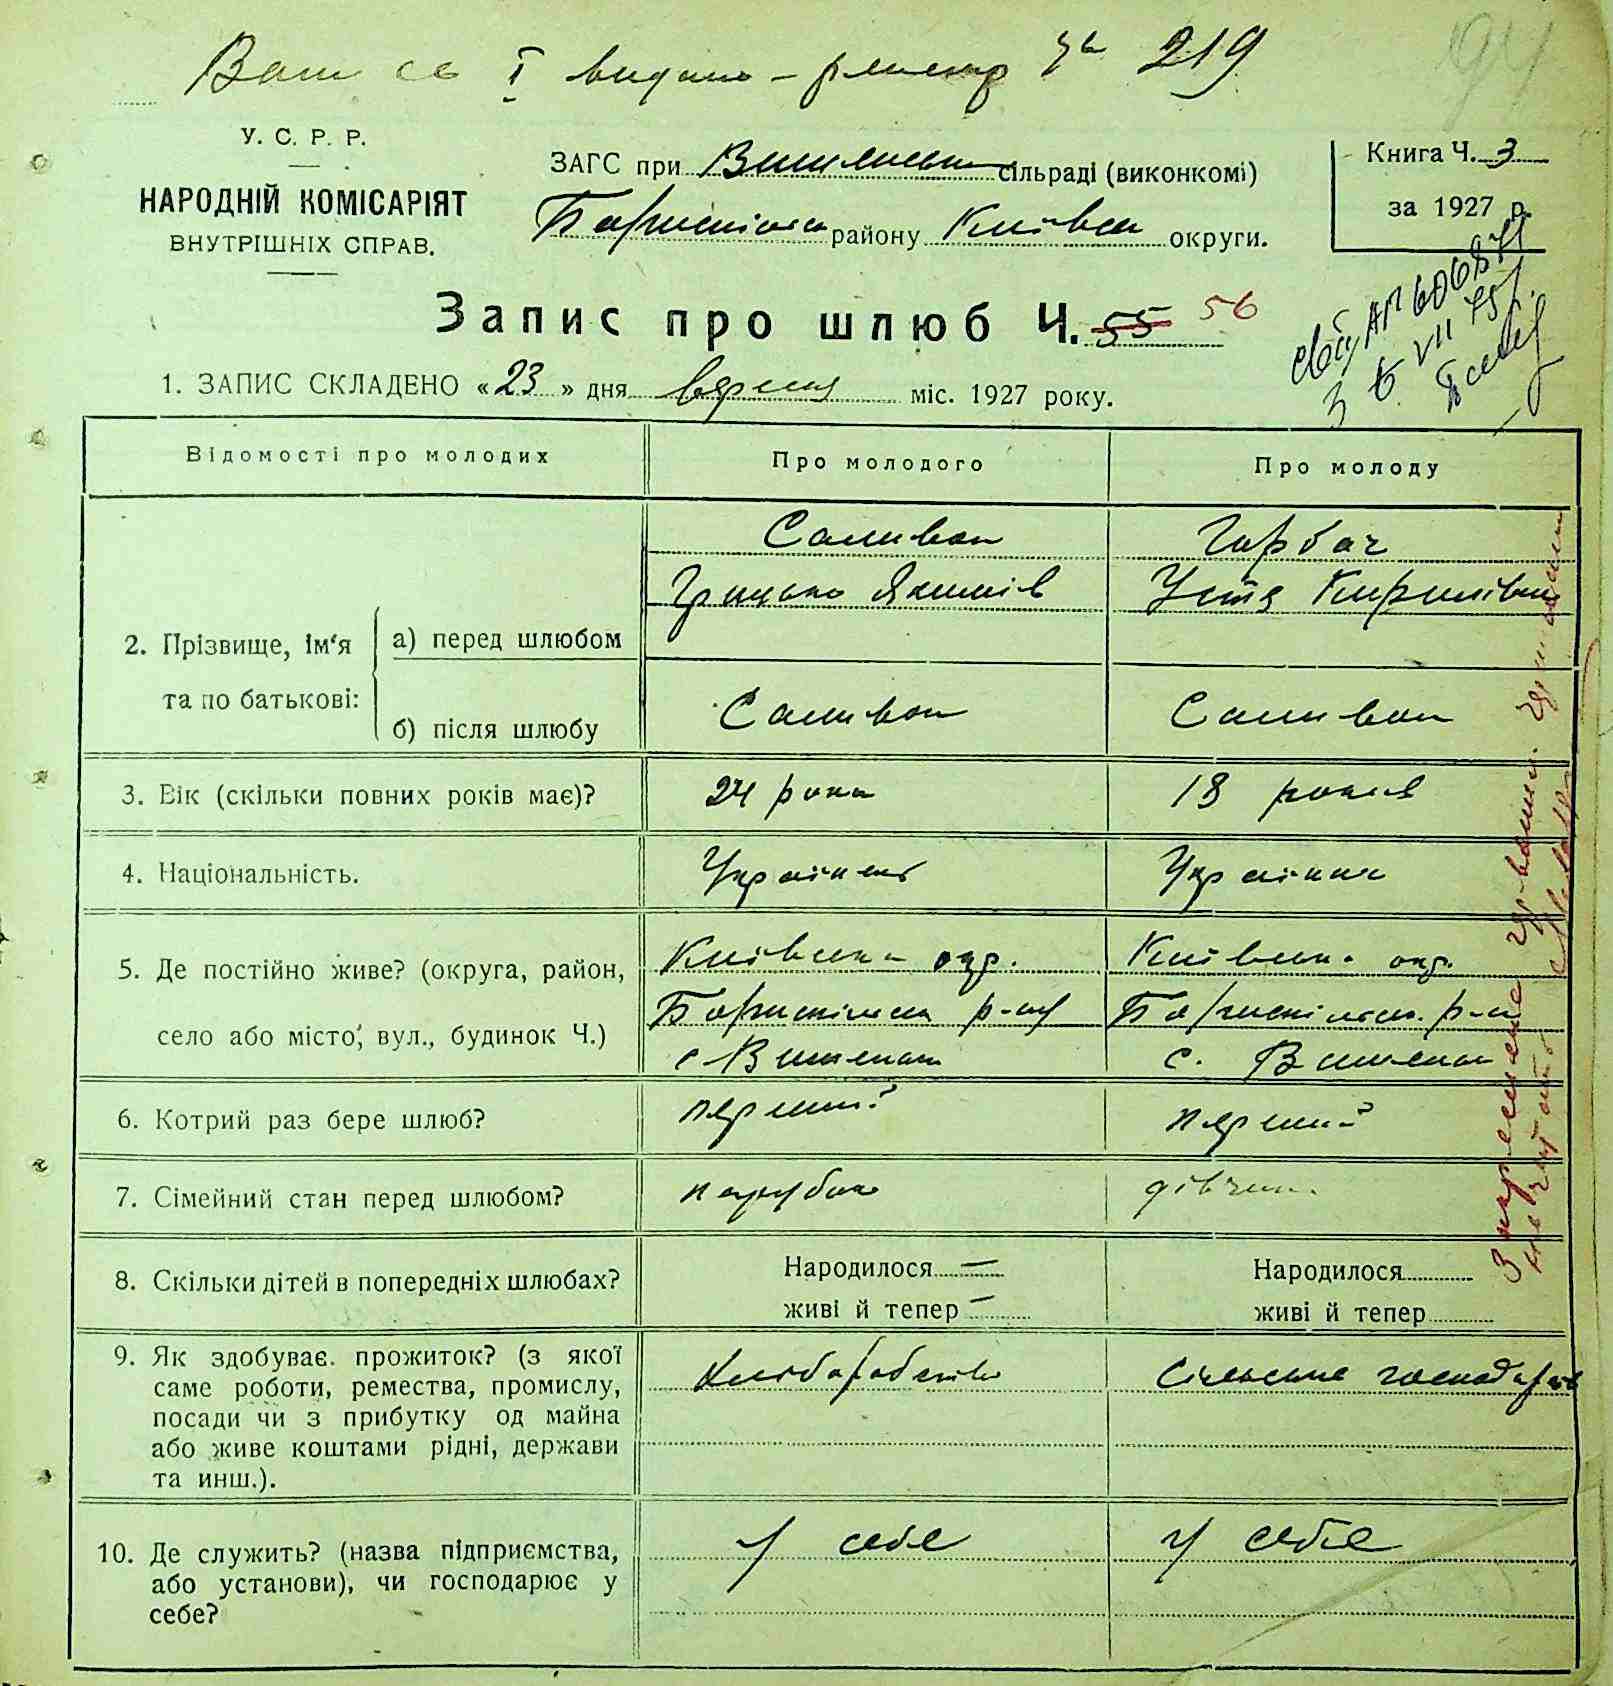 219
94
У. С. Р. Р.
НАРОДНІЙ КОМІСАРІЯТ
ВНУТРІШНІХ СПРАВ.
ЗАГС при сільраді (виконкомі)
району округи.
Книга Ч. 3
за 1927 р.
Запис про шлюб Ч. 55 56
1. ЗАПИС СКЛАДЕНО « 23 » дня вересня міс. 1927 року.
Відомості про молодих
Про молодого
Про молоду
2. Прізвище, ім‘я
та по батькові:
а) перед шлюбом
Саливон
Грицько Якимів
Горбач
Устя Кирилівна
б) після шлюбу
Саливон
Саливон
3. Вік (скільки повних років має)?
24 роки
18 років
4. Національність.
Українець
Українка
5. Де постійно живе? (округа, район,
село або місто, вул., будинок Ч.)
Київська окр.
с.
Київська окр.
с.
6. Котрий раз бере шлюб?
перший
перший
7. Сімейний стан перед шлюбом?
парубок
дівчина
8. Скільки дітей в попередніх шлюбах?
Народилося —
живі й тепер —
Народилося
живі й тепер
9. Як здобуває. прожиток? (з якої
саме роботи, ремества, промислу,
посади чи з прибутку од майна
або живе коштами рідні, держави
та инш.).
Хліборобство
Сільське господарство
10. Де служить? (назва підприємства,
або установи), чи господарює у
себе?
у себе
у себе